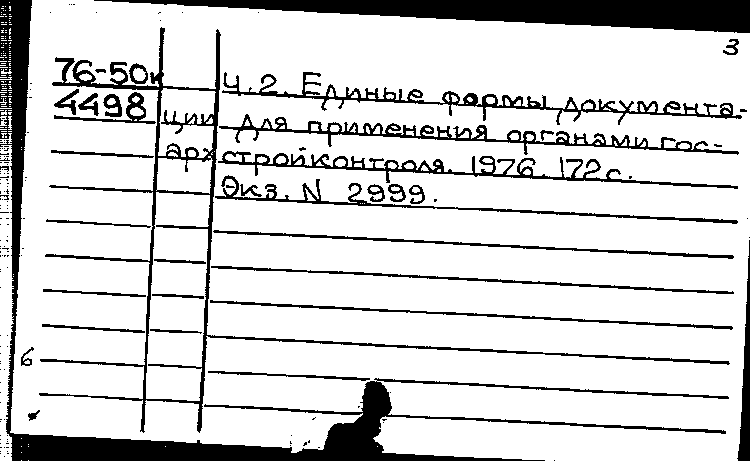 3
76-50к
Ч.2. Единые формы документа-
4498
ции для применения органами гос-
арх стройконтроля. 1976. 172 с.
Экз. N 2999.
6